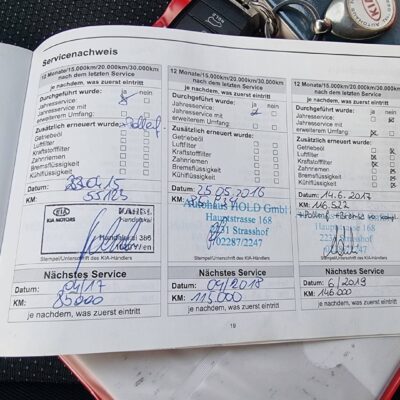 Servicenachweis
12 Monate/15.000km/20.000km/30.000km
nach dem letzten Service
je nachdem, was zuerst eintritt
Durchgeführt wurde: ja nein
Jahresservice:
Jahresservice mit
erweiterem Umfang:
Zusätzlich erneuert wurde:
Getriebeöl
Luftfilter
Kraftstofffilter
Zahnriemen
Bremsflüssigkeit
Kühlflüssigkeit
Datum:
KM: 55125
KIA
KIA MOTORS
Stempel/Unterschrift des KIA-Händlers
Nächstes Service
Datum: 04/17
KM: 85000
je nachdem, was zuerst eintritt
12 Monate/15.000km/20.000km/30.000km
nach dem letzten Service
je nachdem, was zuerst eintritt
Durchgeführt wurde: ja nein
Jahresservice:
Jahresservice mit
erweiterem Umfang:
Zusätzlich erneuert wurde:
Getriebeöl
Luftfilter
Kraftstofffilter
Zahnriemen
Bremsflüssigkeit
Kühlflüssigkeit
Datum: 25.05.2016
KM:
Autohaus HOLD GmbH
Hauptstrasse 168
2231 Strasshof
02287/2247
Stempel/Unterschrift des KIA-Händlers
Nächstes Service
Datum: 04/2018
KM: 115000
je nachdem, was zuerst eintritt
12 Monate/15.000km/20.000km/30.000km
nach dem letzten Service
je nachdem, was zuerst eintritt
Durchgeführt wurde: ja nein
Jahresservice:
Jahresservice mit
erweiterem Umfang:
Zusätzlich erneuert wurde:
Getriebeöl
Luftfilter
Kraftstofffilter
Zahnriemen
Bremsflüssigkeit
Kühlflüssigkeit
Datum: 14.6.2017
KM: 116522
Hauptstrasse 168
2231 Strasshof
Stempel/Unterschrift des KIA-Händlers
Nächstes Service
Datum: 6/2019
KM: 146.000
je nachdem, was zuerst eintritt
19
KIA